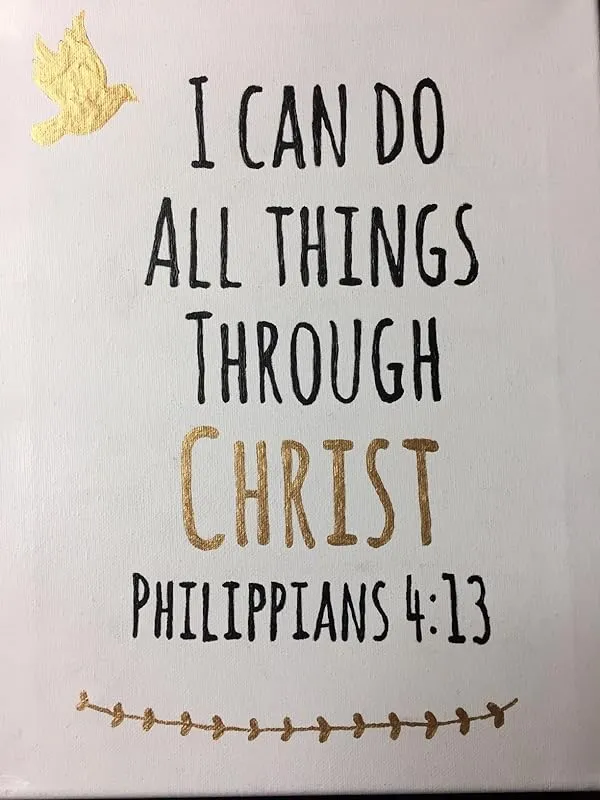 I CAN DO
ALL THINGS
THROUGH
CHRIST
PHILIPPIANS 4:13